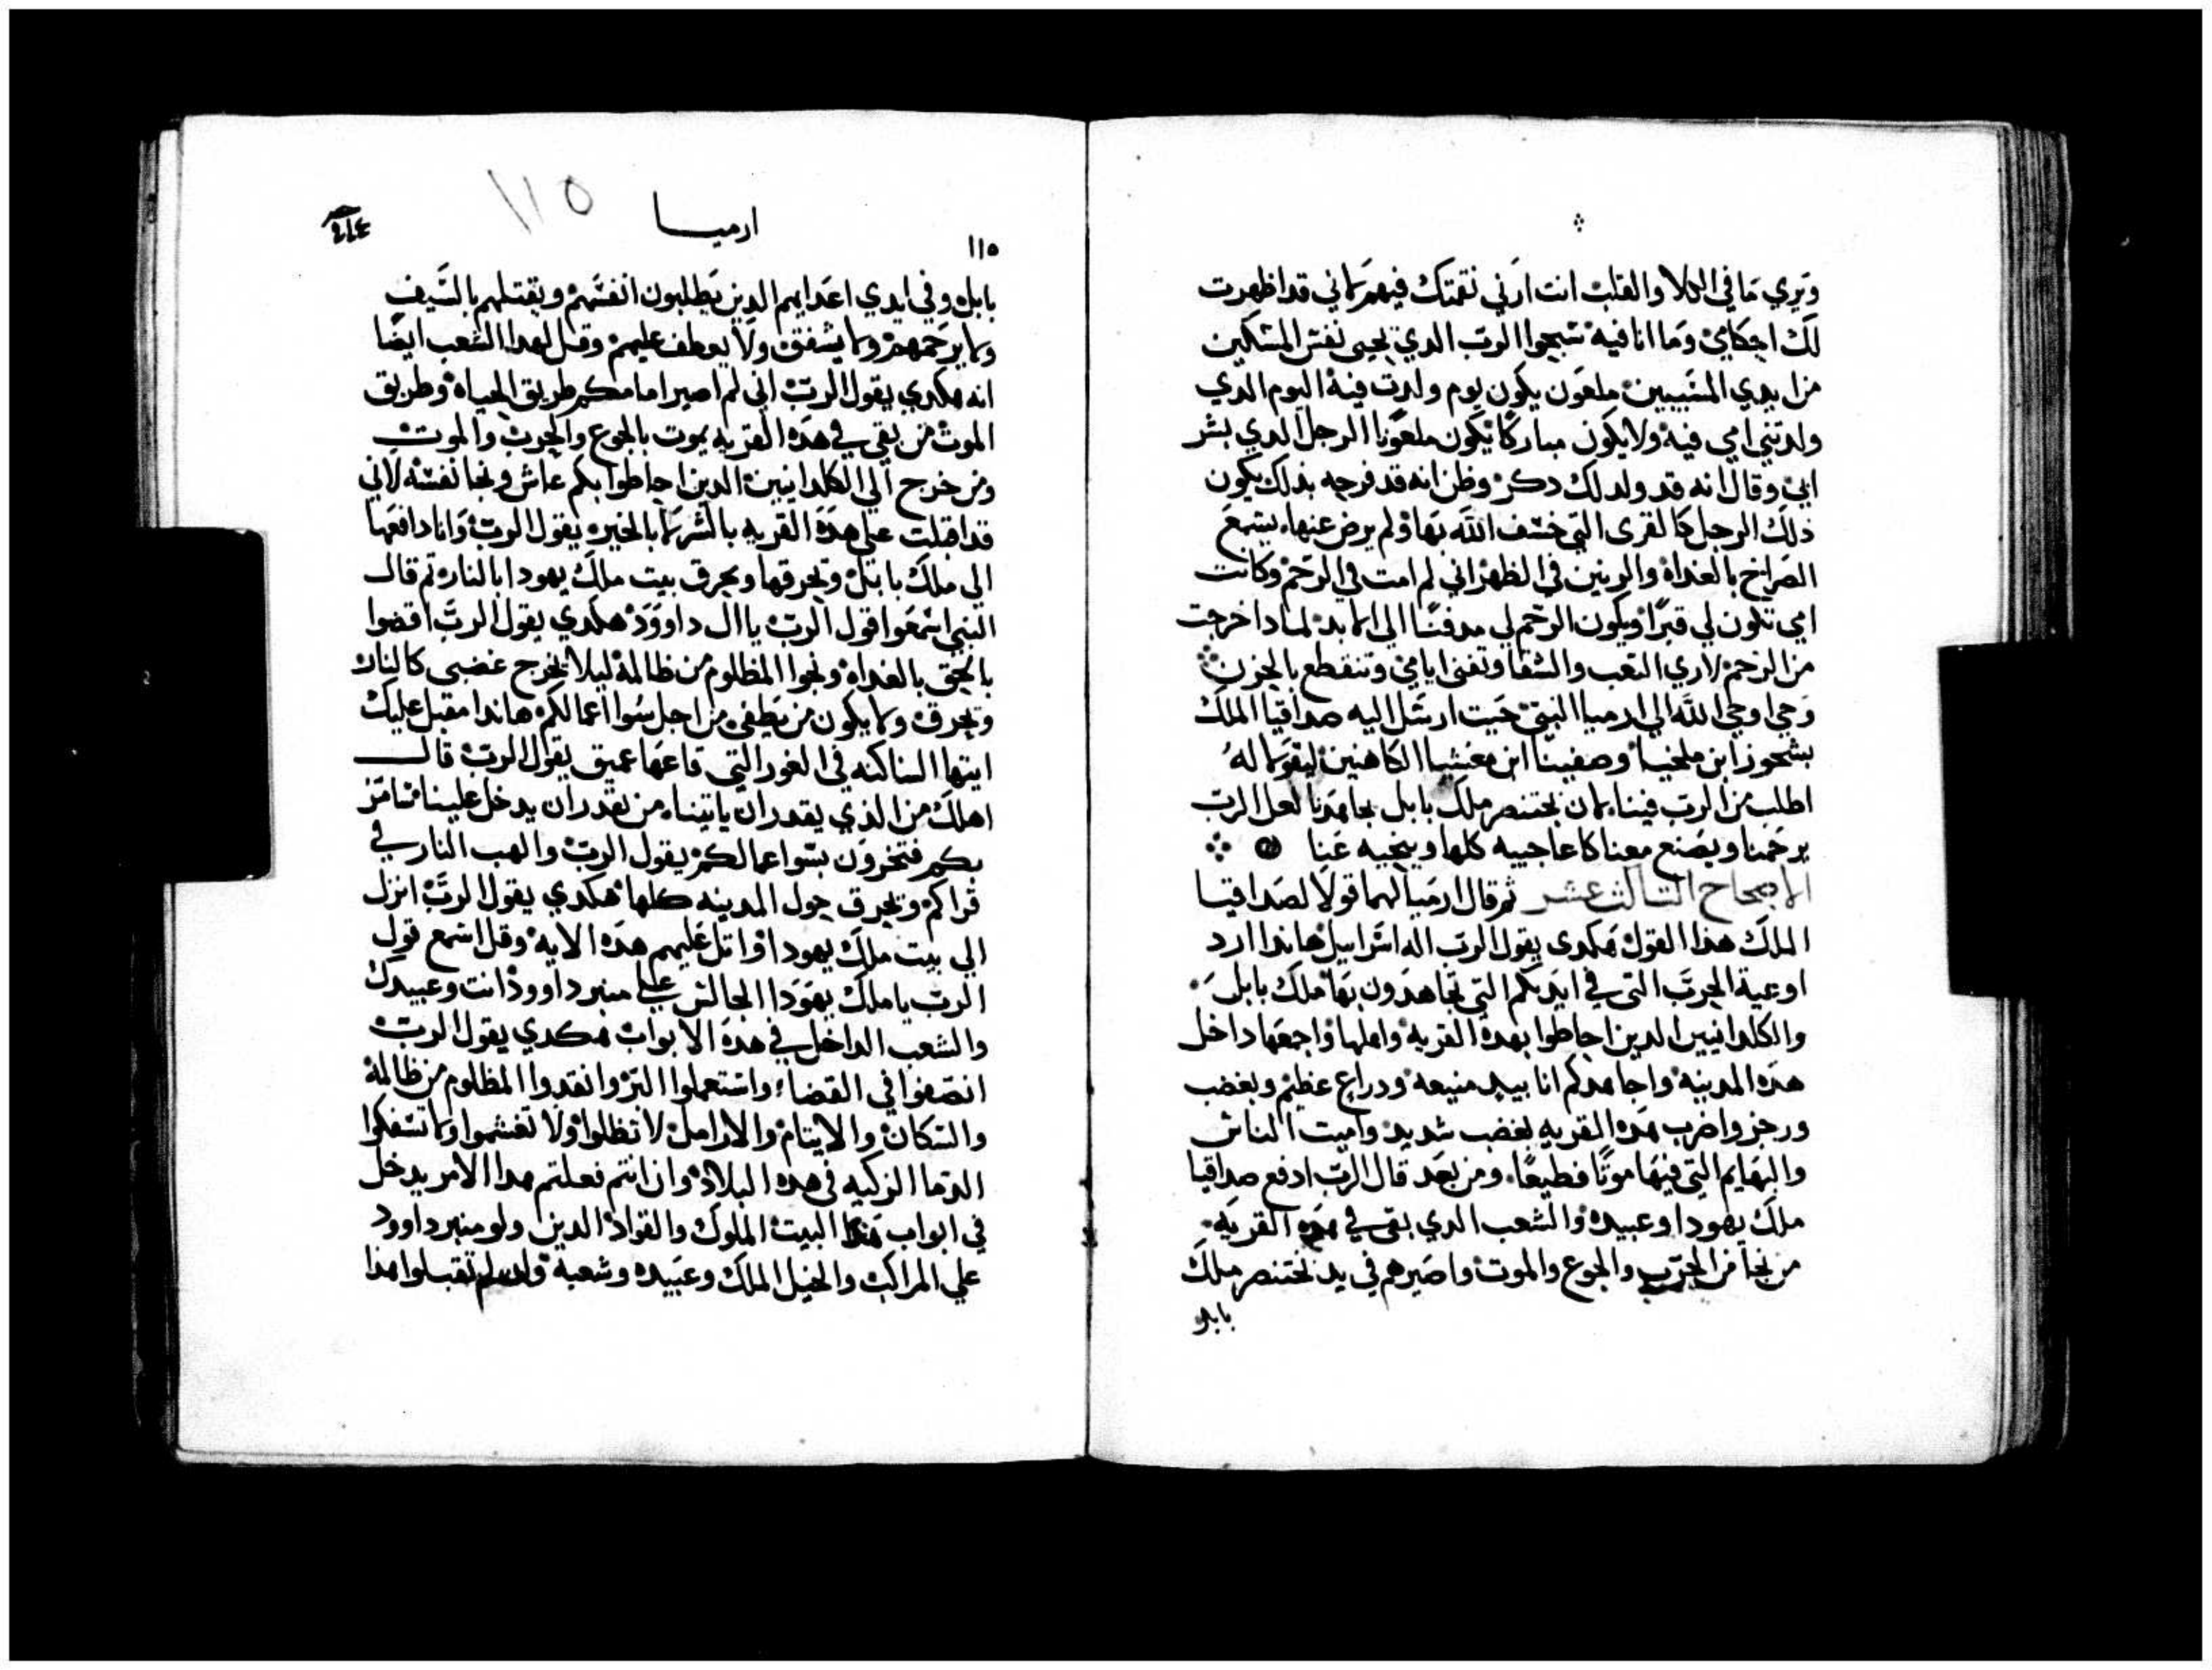 وتري ما في الكلا والقلب انت ارني نقمتك فيهم لاني قد اظهرت
لك احكامي وما انا فيه سبحوا الرب الدي يحيى نفس المسكين
من ايدي المسيين ملعون يكون يوم ولدت فيه اليوم الدي
ولدتني امي فيه ولا يكون مباركا يكون ملعونا الرجل الدي بشر
ابي وقال انه قد ولد لك دكر وظن انه قد فرحه بدلك يكون
ذلك الرجل كالقرى التي خسف الله بها ولم يرض عنها يسمع
الصراخ بالغداه والرنين في الظهر اني لم امت في الرحم وكانت
امي تكون لي قبرا ويكون الرحم لي مدفنا الى الابد لمادا خرجت
من الرحم لاري التعب والشقا وتفنى ايامي وتنقطع بالحزن
وحي اوحي الله الي ارميا النبي حيت ارسل اليه صداقيا الملك
بشحوز ابن ملخيا وصفينا ابن معنشيا الكاهنين ليقولا له
اطلب من الرب فينا لان بختنصر ملك بابل يجاهدنا لعل الرب
يرحمنا ويصنع معنا كاعاجيبه كلها وينجيه عنا
الاصحاح التالت عشر ثم قال ارميا لهما قولا لصداقيا
الملك هذا القول هكدى يقول الرب اله اسراييل هاندا ارد
اوعية الحرب التي في ايديكم التي تجاهدون بها ملك بابل
والكلدانيين الدين احاطوا بهده القريه واهلها واجمعها داخل
هده المدينه واجاهدكم انا بيد منيعه ودراع عظيم وبغضب
ورجز واضرب هده القريه بغضب شديد واميت الناس
والبهايم التي فيها موتا فظيعا ومن بعد قال الرب ادفع صداقيا
ملك يهودا وعبيده والشعب الدي بقى في هده القريه
من نجا من الحرب والجوع والموت واصيرهم في يد بختنصر ملك
بابل
ارميا
١١٥
١١٥
بابل وفي ايدي اعدايهم الدين يطلبون انفسهم ويقتلهم بالسيف
ولا يرحمهم ولا يشفق ولا يعطف عليهم وقل لهدا الشعب ايضا
انه هكدي يقول الرب اني لم اصير امامكم طريق الحياه وطريق
الموت من بقي في هده القريه يموت بالجوع والحرب والموت
ومن خرج الي الكلدانيين الدين احاطوا بكم عاش ونجا نفسه لاني
قد اقبلت علي هده القريه بالشر لا بالخير يقول الرب وانا دافعها
الي ملك بابل ويحرقها ويحرق بيت ملك يهودا بالنار ثم قال
النبي اسمعوا قول الرب يا ال داوود هكدي يقول الرب اقضوا
بالحق بالغداه ونجوا المظلوم من ظالمه ليلا يخرج غضبي كالنار
ويحرق ولا يكون من يطفي من اجل سوا اعمالكم هاندا مقبل عليك
ايتها الساكنه في الغور التي قاعها عميق يقول الرب قال
اهلك من الذي يقدر ان ياتينا من يقدر ان يدخل علينا
بكم فتخرون بسوا عمالكم يقول الرب والهب النار في
قراكم ويحرق حول المدينه كلها هكدي يقول الرب انزل
الي بيت ملك يهودا واتل عليهم هده الايه وقل اسمع قول
الرب يا ملك يهودا الجالس علي منبر داوود انت وعبيدك
والشعب الداخل في هده الابواب هكدي يقول الرب
انصفوا في القضا واستعملوا البر وانقدوا المظلوم من ظالمه
والسكان والايتام والارامل لا تظلوا ولا تغشموا ولا تسفكوا
الدما الزكيه في هده البلاد وان انتم فعلتم هدا الامر يدخل
في ابواب هدا البيت الملوك والقواد الدين ولو منبر داوود
علي المراكب والخيل الملك وعبيده وشعبه وان لم تقبلوا هذا